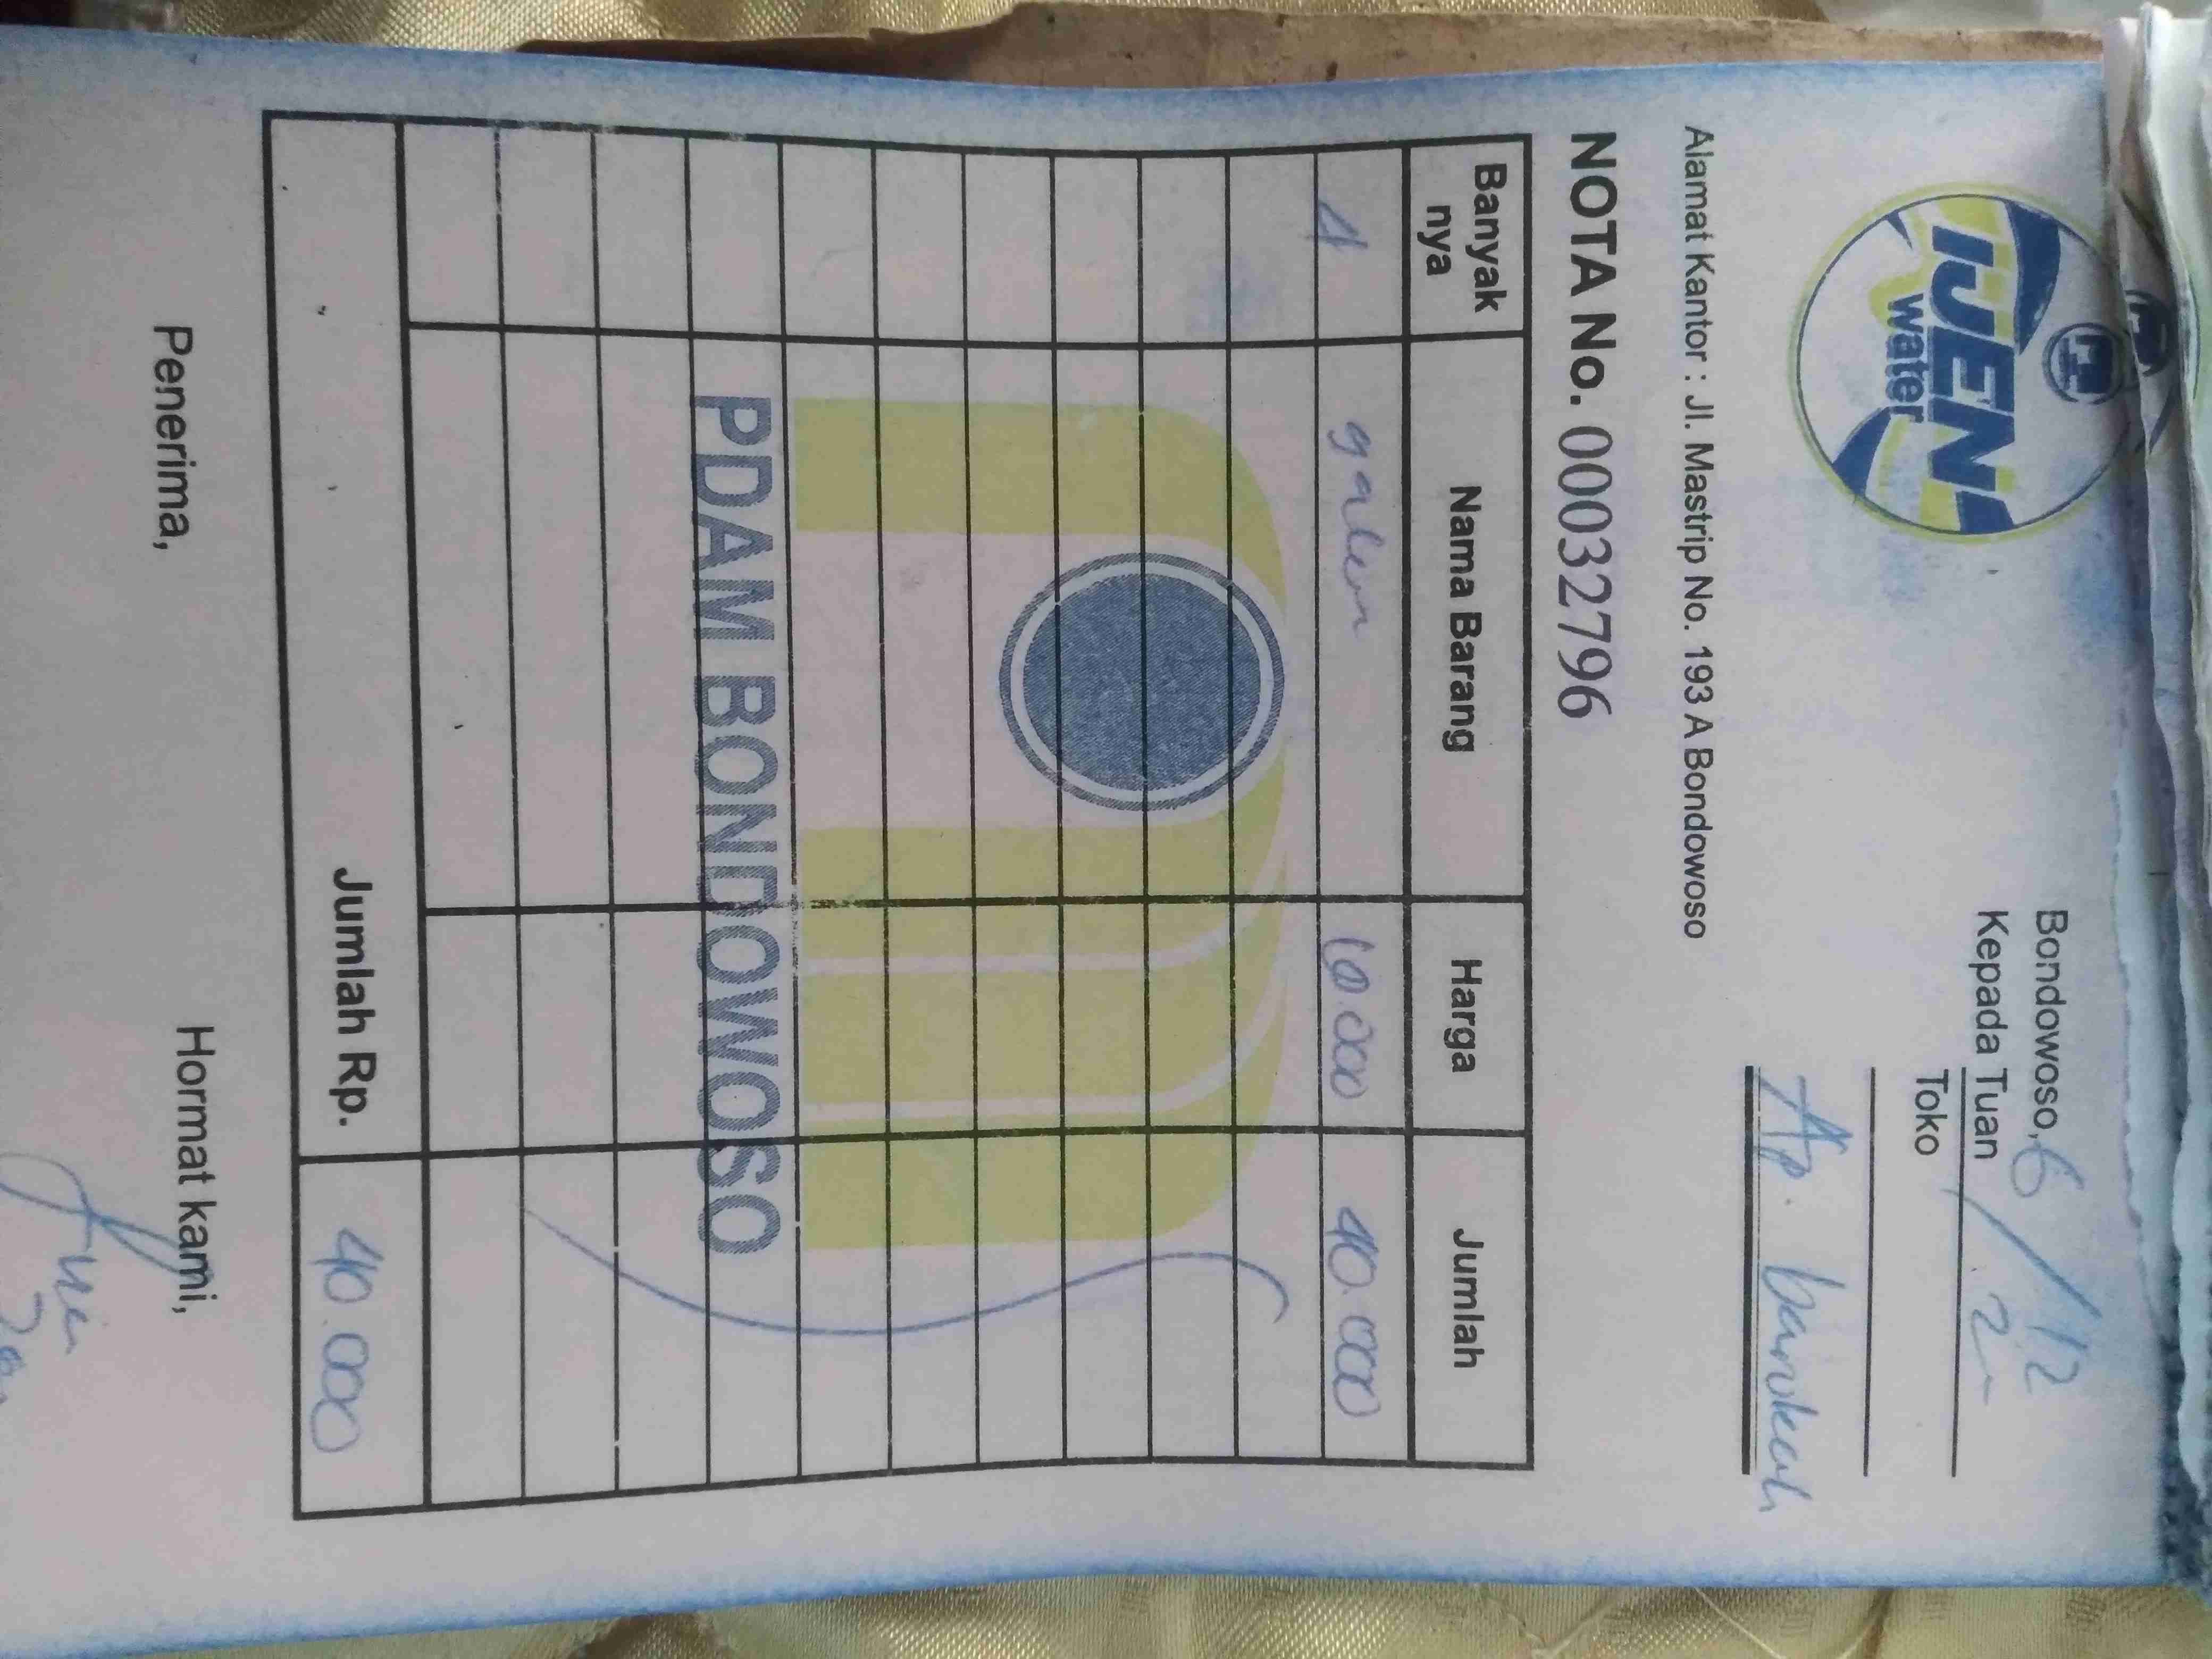 IJEN
water
Bondowoso, 6/12
Kepada Tuan
Toko
Ap. barokah
Alamat Kantor : Jl. Mastrip No. 193 A Bondowoso
NOTA No. 00032796
Banyak nya Nama Barang Harga Jumlah
4 galon 10.000 40.000
PDAM BONDOWOSO
Jumlah Rp. 40.000
Penerima, Hormat kami,